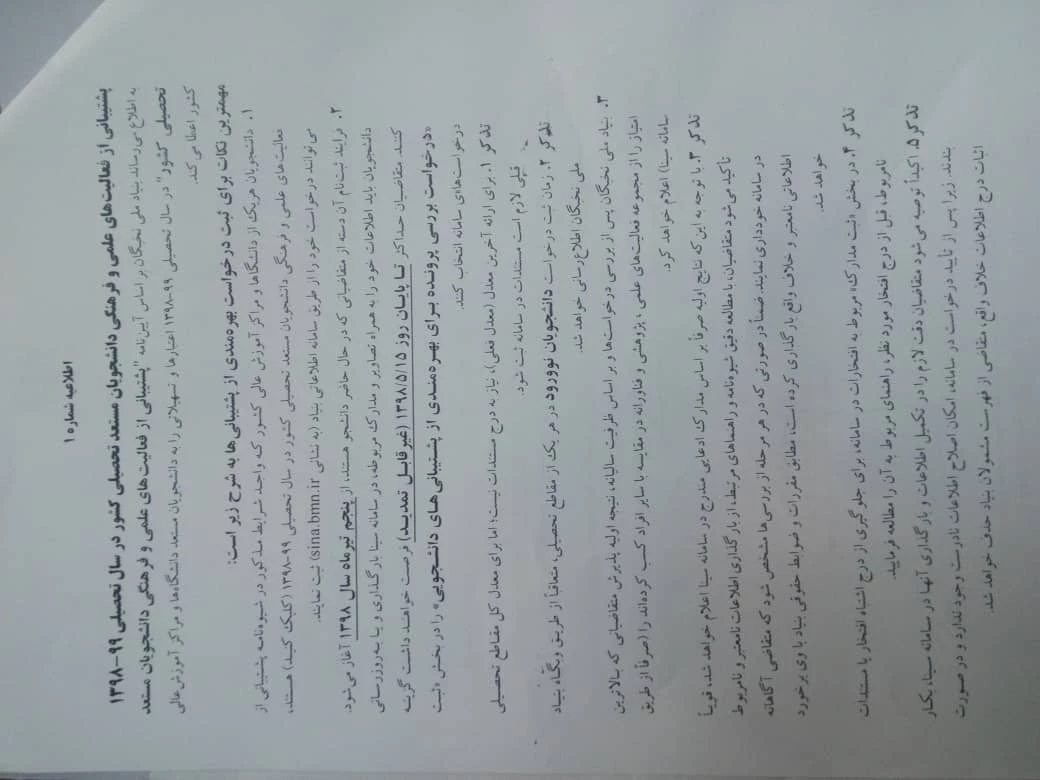 اطلاعیه شماره ۱
پشتیبانی از فعالیت‌های علمی و فرهنگی دانشجویان مستعد تحصیلی کشور در سال تحصیلی ۹۹-۱۳۹۸
به اطلاع می‌رساند بنیاد ملی نخبگان بر اساس آیین‌نامه "پشتیبانی از فعالیت‌های علمی و فرهنگی دانشجویان مستعد
تحصیلی کشور" در سال تحصیلی ۹۹-۱۳۹۸ اعتبارها و تسهیلاتی را به دانشجویان مستعد دانشگاه‌ها و مراکز آموزش عالی
کشور اعطا می کند.
مهمترین نکات برای ثبت درخواست بهره‌مندی از پشتیبانی‌ها به شرح زیر است:
۱. دانشجویان هریک از دانشگاها و مراکز آموزش عالی کشور که واجد شرایط مذکور در شیوه‌نامه پشتیبانی از
فعالیت‌های علمی و فرهنگی دانشجویان مستعد تحصیلی کشور در سال تحصیلی ۹۹-۱۳۹۸ (کلیک کنید) هستند،
می‌توانند درخواست خود را از طریق سامانه اطلاعاتی بنیاد (به نشانی sina.bmn.ir) ثبت نمایند.
۲. فرایند ثبت‌نام آن دسته از متقاضیانی که در حال حاضر دانشجو هستند، از پنجم تیرماه سال ۱۳۹۸ آغاز می‌شود.
دانشجویان باید اطلاعات خود را به همراه تصاویر و مدارک مربوطه در سامانه سینا بارگذاری و یا به‌روزرسانی
کنند. متقاضیان حداکثر تا پایان روز ۱۳۹۸/۵/۱۵ (غیرقابل تمدید) فرصت خواهند داشت گزینه
«درخواست بررسی پرونده برای بهره‌مندی از پشتیبانی‌های دانشجویی» را در بخش «ثبت
درخواست‌ها»ی سامانه انتخاب کنند.
تذکر ۱. برای ارائه آخرین معدل (معدل فعلی)، نیاز به درج مستندات نیست؛ اما برای معدل کل مقاطع تحصیلی
قبلی لازم است مستندات در سامانه ثبت شود.
تذکر ۲. زمان ثبت درخواست دانشجویان نوورود در هر یک از مقاطع تحصیلی، متعاقباً از طریق وبگاه بنیاد
ملی نخبگان اطلاع‌رسانی خواهد شد.
۳. بنیاد ملی نخبگان پس از بررسی درخواست‌ها و بر اساس ظرفیت سالیانه، نتیجه اولیه پذیرش متقاضیانی که بالاترین
امتیاز را از مجموعه فعالیت‌های علمی، پژوهشی و فناورانه در مقایسه با سایر افراد کسب کرده‌اند را (صرفاً از طریق
سامانه سینا) اعلام خواهد کرد.
تذکر ۳. با توجه به این که نتایج اولیه صرفاً بر اساس مدارک ادعایی مندرج در سامانه سینا اعلام خواهد شد، قویاً
تأکید می‌شود متقاضیان، با مطالعه دقیق شیوه‌نامه و راهنماهای مرتبط، از بارگذاری اطلاعات نامعتبر و نامربوط
در سامانه خودداری نمایند. ضمناً در صورتی که در هر مرحله از بررسی‌ها مشخص شود که متقاضی آگاهانه
اطلاعاتی نامعتبر و خلاف واقع بارگذاری کرده است، مطابق مقررات و ضوابط حقوقی بنیاد با وی برخورد
خواهد شد.
تذکر ۴. در بخش «ثبت مدارک» مربوط به افتخارات در سامانه، برای جلوگیری از درج اشتباه افتخار یا مستندات
نامربوط، قبل از درج افتخار مورد نظر، راهنمای مربوط به آن را مطالعه فرمایید.
تذکر ۵. اکیداً توصیه می‌شود متقاضیان دقت لازم را در تکمیل اطلاعات و بارگذاری آنها در سامانه سینا بکار
بندند زیرا پس از تأیید درخواست در سامانه، امکان اصلاح اطلاعات نادرست وجود ندارد و در صورت
اثبات درج اطلاعات خلاف واقع، متقاضی از فهرست مشمولان بنیاد حذف خواهد شد.